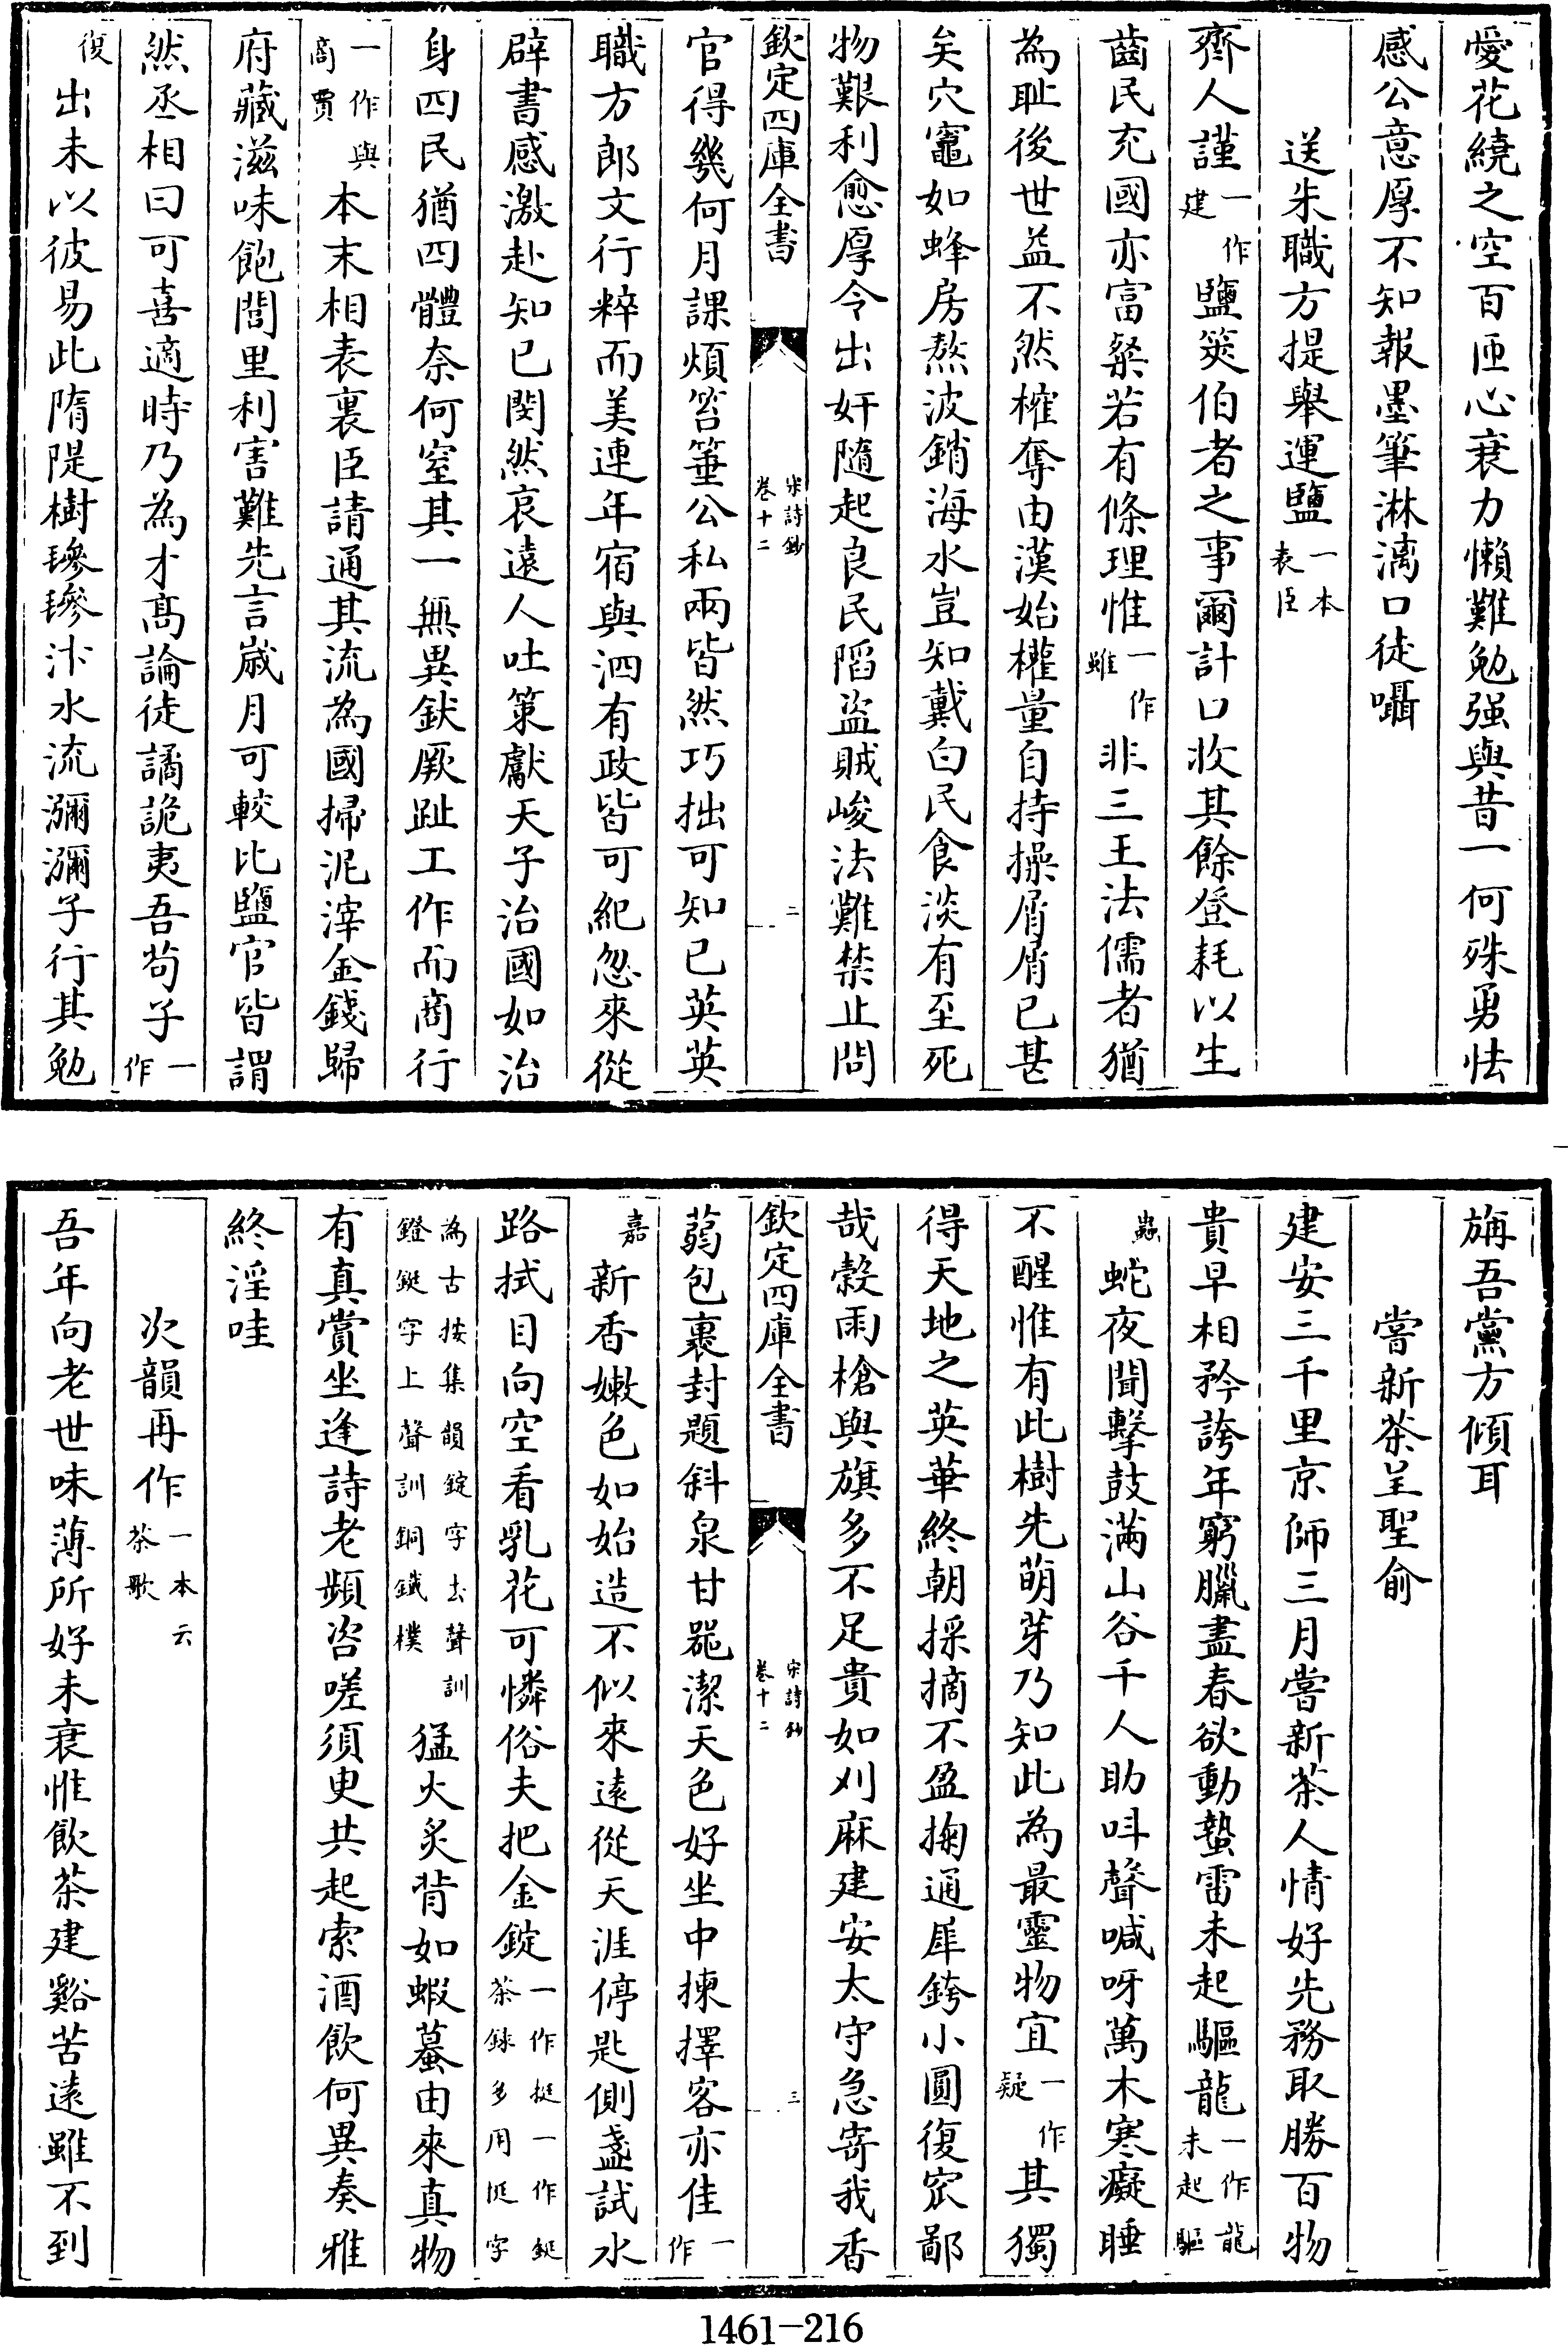 愛花繞之空百匝心衰力懶難勉强與昔一何殊勇怯
感公意厚不知報墨筆淋漓口徒囁
送朱職方提舉運鹽一本表臣
齊人謹一作建鹽筴伯者之事爾計口收其餘登耗以生
齒民充國亦富粲若有條理惟一作雖非三王法儒者猶
為耻後世益不然榷奪由漢始權量自持操屑屑已甚
矣穴竈如蜂房熬波銷海水豈知戴白民食淡有至死
物艱利愈厚令出奸隨起良民陷盜賊峻法難禁止問
欽定四庫全書 宋詩鈔卷十二 二
官得幾何月課煩笞箠公私兩皆然巧拙可知已英英
職方郎文行粹而美連年宿與泗有政皆可紀忽來從
辟書感激赴知已閔然哀遠人吐策獻天子治國如治
身四民猶四體奈何窒其一無異釱厥趾工作而商行
一作與商賈本末相表裏臣請通其流為國掃泥滓金錢歸
府藏滋味飽閭里利害難先言歲月可較比鹽官皆謂
然丞相曰可喜適時乃為才高論徒譎詭夷吾茍子一作
復出未以彼易此隋隄樹毿毿汴水流瀰瀰子行其勉
旃吾黨方傾耳
嘗新茶呈聖俞
建安三千里京師三月嘗新茶人情好先務取勝百物
貴早相矜誇年窮臘盡春欲動蟄雷未起驅龍一作龍未起驅
蟲蛇夜聞擊鼓滿山谷千人助呌聲喊呀萬木寒癡睡
不醒惟有此樹先萌芽乃知此為最靈物宜一作疑其獨
得天地之英華終朝採摘不盈掬通犀銙小圓復窊鄙
哉穀雨槍與旗多不足貴如刈麻建安太守急寄我香
欽定四庫全書 宋詩鈔卷十二 三
蒻包裹封題斜泉甘器潔天色好坐中揀擇客亦佳一作
嘉新香嫩色如始造不似來遠從天涯停匙側盞試水
路拭目向空看乳花可憐俗夫把金錠一作挺一作鋌茶録多用挺字
為古按集韻錠字去聲訓鐙鋌字上聲訓銅鐵樸猛火炙背如蝦蟇由來真物
有真賞坐逢詩老頻咨嗟須臾共起索酒飲何異奏雅
終淫哇
次韻再作一本云茶歌
吾年向老世味薄所好未衰惟飲茶建谿苦遠雖不到
1461-216